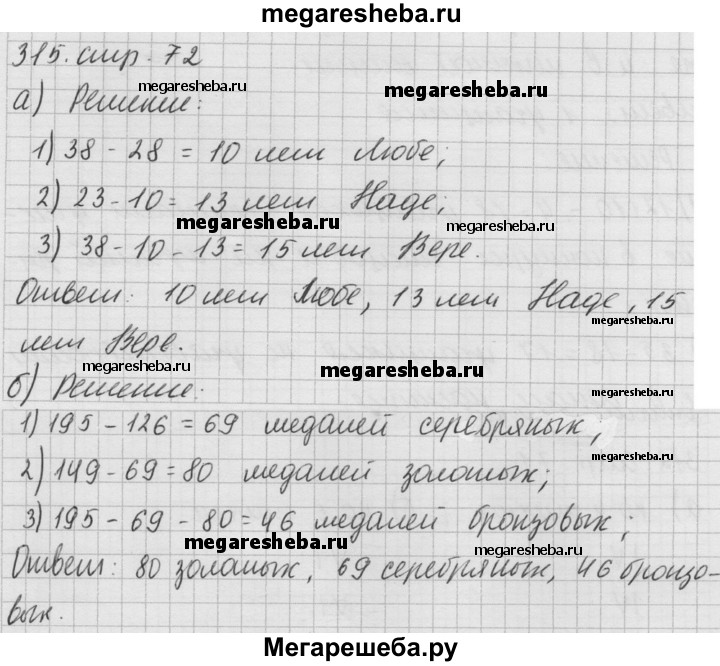 megaresheba.ru
315. стр. 72
megaresheba.ru
а) Решение:
megaresheba.ru
1) 38 - 28 = 10 лет Любе;
2) 23 - 10 = 13 лет Наде;
megaresheba.ru
megaresheba.ru
3) 38 - 10 - 13 = 15 лет Вере.
Ответ: 10 лет Любе, 13 лет Наде, 15
megaresheba.ru
лет Вере.
megaresheba.ru
megaresheba.ru
б) Решение:
1) 195 - 126 = 69 медалей серебряных;
megaresheba.ru
2) 149 - 69 = 80 медалей золотых;
3) 195 - 69 - 80 = 46 медалей бронзовых;
megaresheba.ru
megaresheba.ru
Ответ: 80 золотых, 69 серебряных, 46 бронзо-
вых.
Мегарешеба.ру